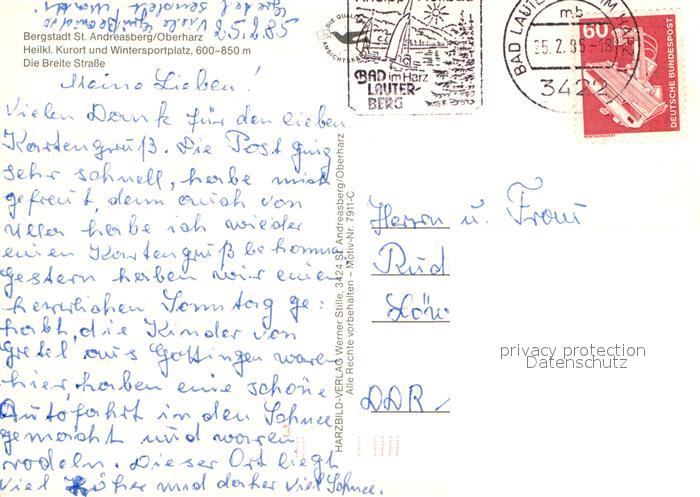 Bergstadt St. Andreasberg/Oberharz
Heilkl. Kurort und Wintersportplatz, 600–850 m
Die Breite Straße
Meine Lieben!
Vielen Dank für den lieben
Kartengruß. Die Post ging
sehr schnell, habe mich
gefreut, denn auch von
habe ich wieder
einen Kartengruß bekommen
gestern haben wir einen
herrlichen Sonntag ge=
habt, die Kinder von
Gretel aus Göttingen waren
hier, haben eine schöne
Autofahrt in den Schnee
gemacht und waren
rodeln. Dieser Ort liegt
viel höher und daher viel Schnee.
25.2.85 Viele Grüße
sendet
Gretel
HARZBILD-VERLAG Werner Stille, 3424 St. Andreasberg/Oberharz
Alle Rechte vorbehalten – Motiv-Nr. 7911-C
DIE QUALI
ANSICHTSKA
BAD im Harz
LAUTER-
BERG
BAD LAUTE IM HARZ
mb
25.2.85-18
3422
60
DEUTSCHE BUNDESPOST
Herrn u. Frau
Rud
DDR
privacy protection
Datenschutz